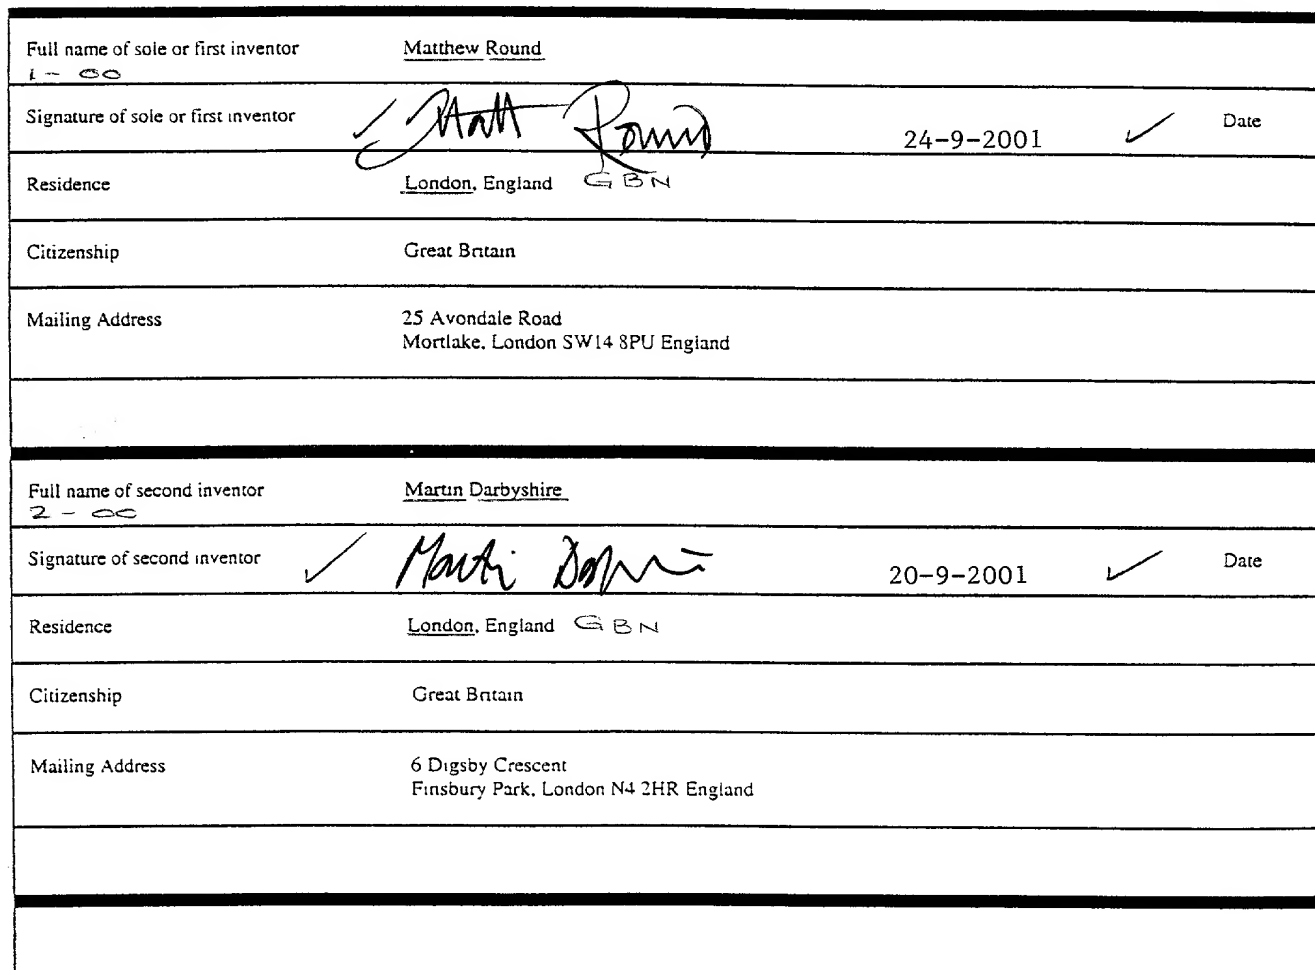 Full name of sole or first inventor Matthew Round
1 - 00
Signature of sole or first inventor ✓ Matt Round 24-9-2001 ✓ Date
Residence London, England GBN
Citizenship Great Britain
Mailing Address 25 Avondale Road
Mortlake, London SW14 8PU England
Full name of second inventor Martin Darbyshire
2 - 00
Signature of second inventor ✓ Martin 20-9-2001 ✓ Date
Residence London, England GBN
Citizenship Great Britain
Mailing Address 6 Digsby Crescent
Finsbury Park, London N4 2HR England